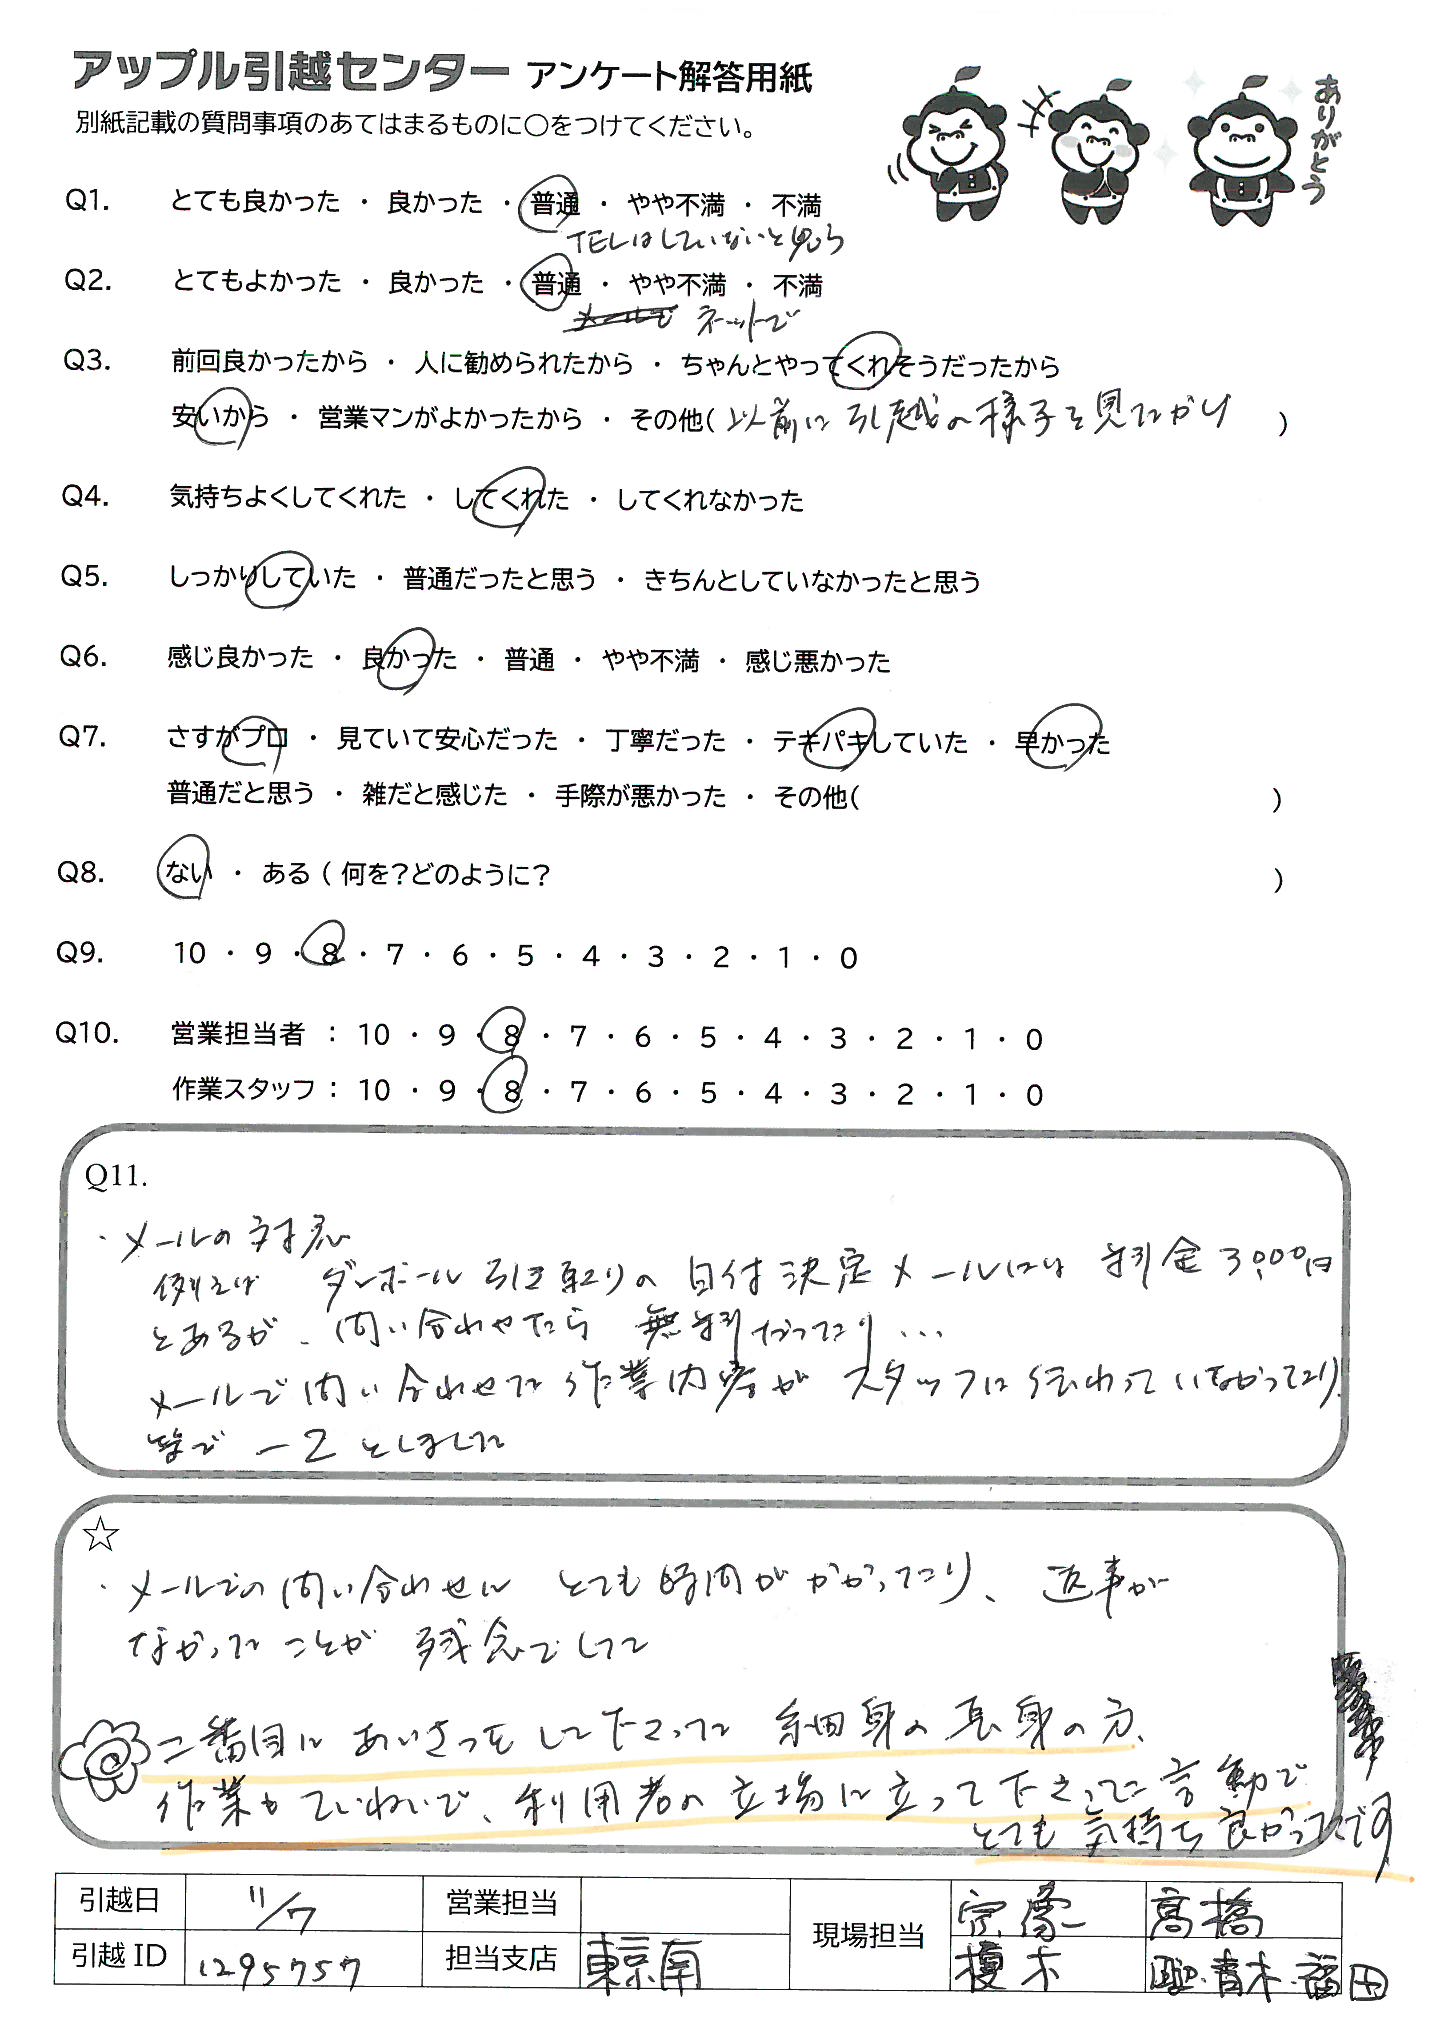 アップル引越センター アンケート解答用紙
別紙記載の質問事項のあてはまるものに○をつけてください。
ありがとう
Q1. とても良かった ・ 良かった ・ 普通 ・ やや不満 ・ 不満
TELはしていないと思う
Q2. とてもよかった ・ 良かった ・ 普通 ・ やや不満 ・ 不満
メールで ネットで
Q3. 前回良かったから ・ 人に勧められたから ・ ちゃんとやってくれそうだったから
安いから ・ 営業マンがよかったから ・ その他( 以前に引越の様子を見たから )
Q4. 気持ちよくしてくれた ・ してくれた ・ してくれなかった
Q5. しっかりしていた ・ 普通だったと思う ・ きちんとしていなかったと思う
Q6. 感じ良かった ・ 良かった ・ 普通 ・ やや不満 ・ 感じ悪かった
Q7. さすがプロ ・ 見ていて安心だった ・ 丁寧だった ・ テキパキしていた ・ 早かった
普通だと思う ・ 雑だと感じた ・ 手際が悪かった ・ その他( )
Q8. ない ・ ある ( 何を?どのように? )
Q9. 10 ・ 9 ・ 8 ・ 7 ・ 6 ・ 5 ・ 4 ・ 3 ・ 2 ・ 1 ・ 0
Q10. 営業担当者 : 10 ・ 9 ・ 8 ・ 7 ・ 6 ・ 5 ・ 4 ・ 3 ・ 2 ・ 1 ・ 0
作業スタッフ : 10 ・ 9 ・ 8 ・ 7 ・ 6 ・ 5 ・ 4 ・ 3 ・ 2 ・ 1 ・ 0
Q11.
・メールの対応
例えば ダンボール引き取りの日付決定メールには 料金3,000円
とあるが、問い合わせたら 無料だったり...
メールで問い合わせた作業内容が スタッフに伝わっていなかったり、
等で −2としました
☆
・メールでの問い合わせに とても時間がかかったり、返事が
なかったことが 残念でした
二番目に あいさつをして下さった 細身の長身の方、
作業もていねいで、利用者の立場に立って下さった言動で
とても気持ち良かったです
引越日 11/7 営業担当 現場担当 宗像 高橋
引越ID 1295757 担当支店 東京南 榎木 青木・福田